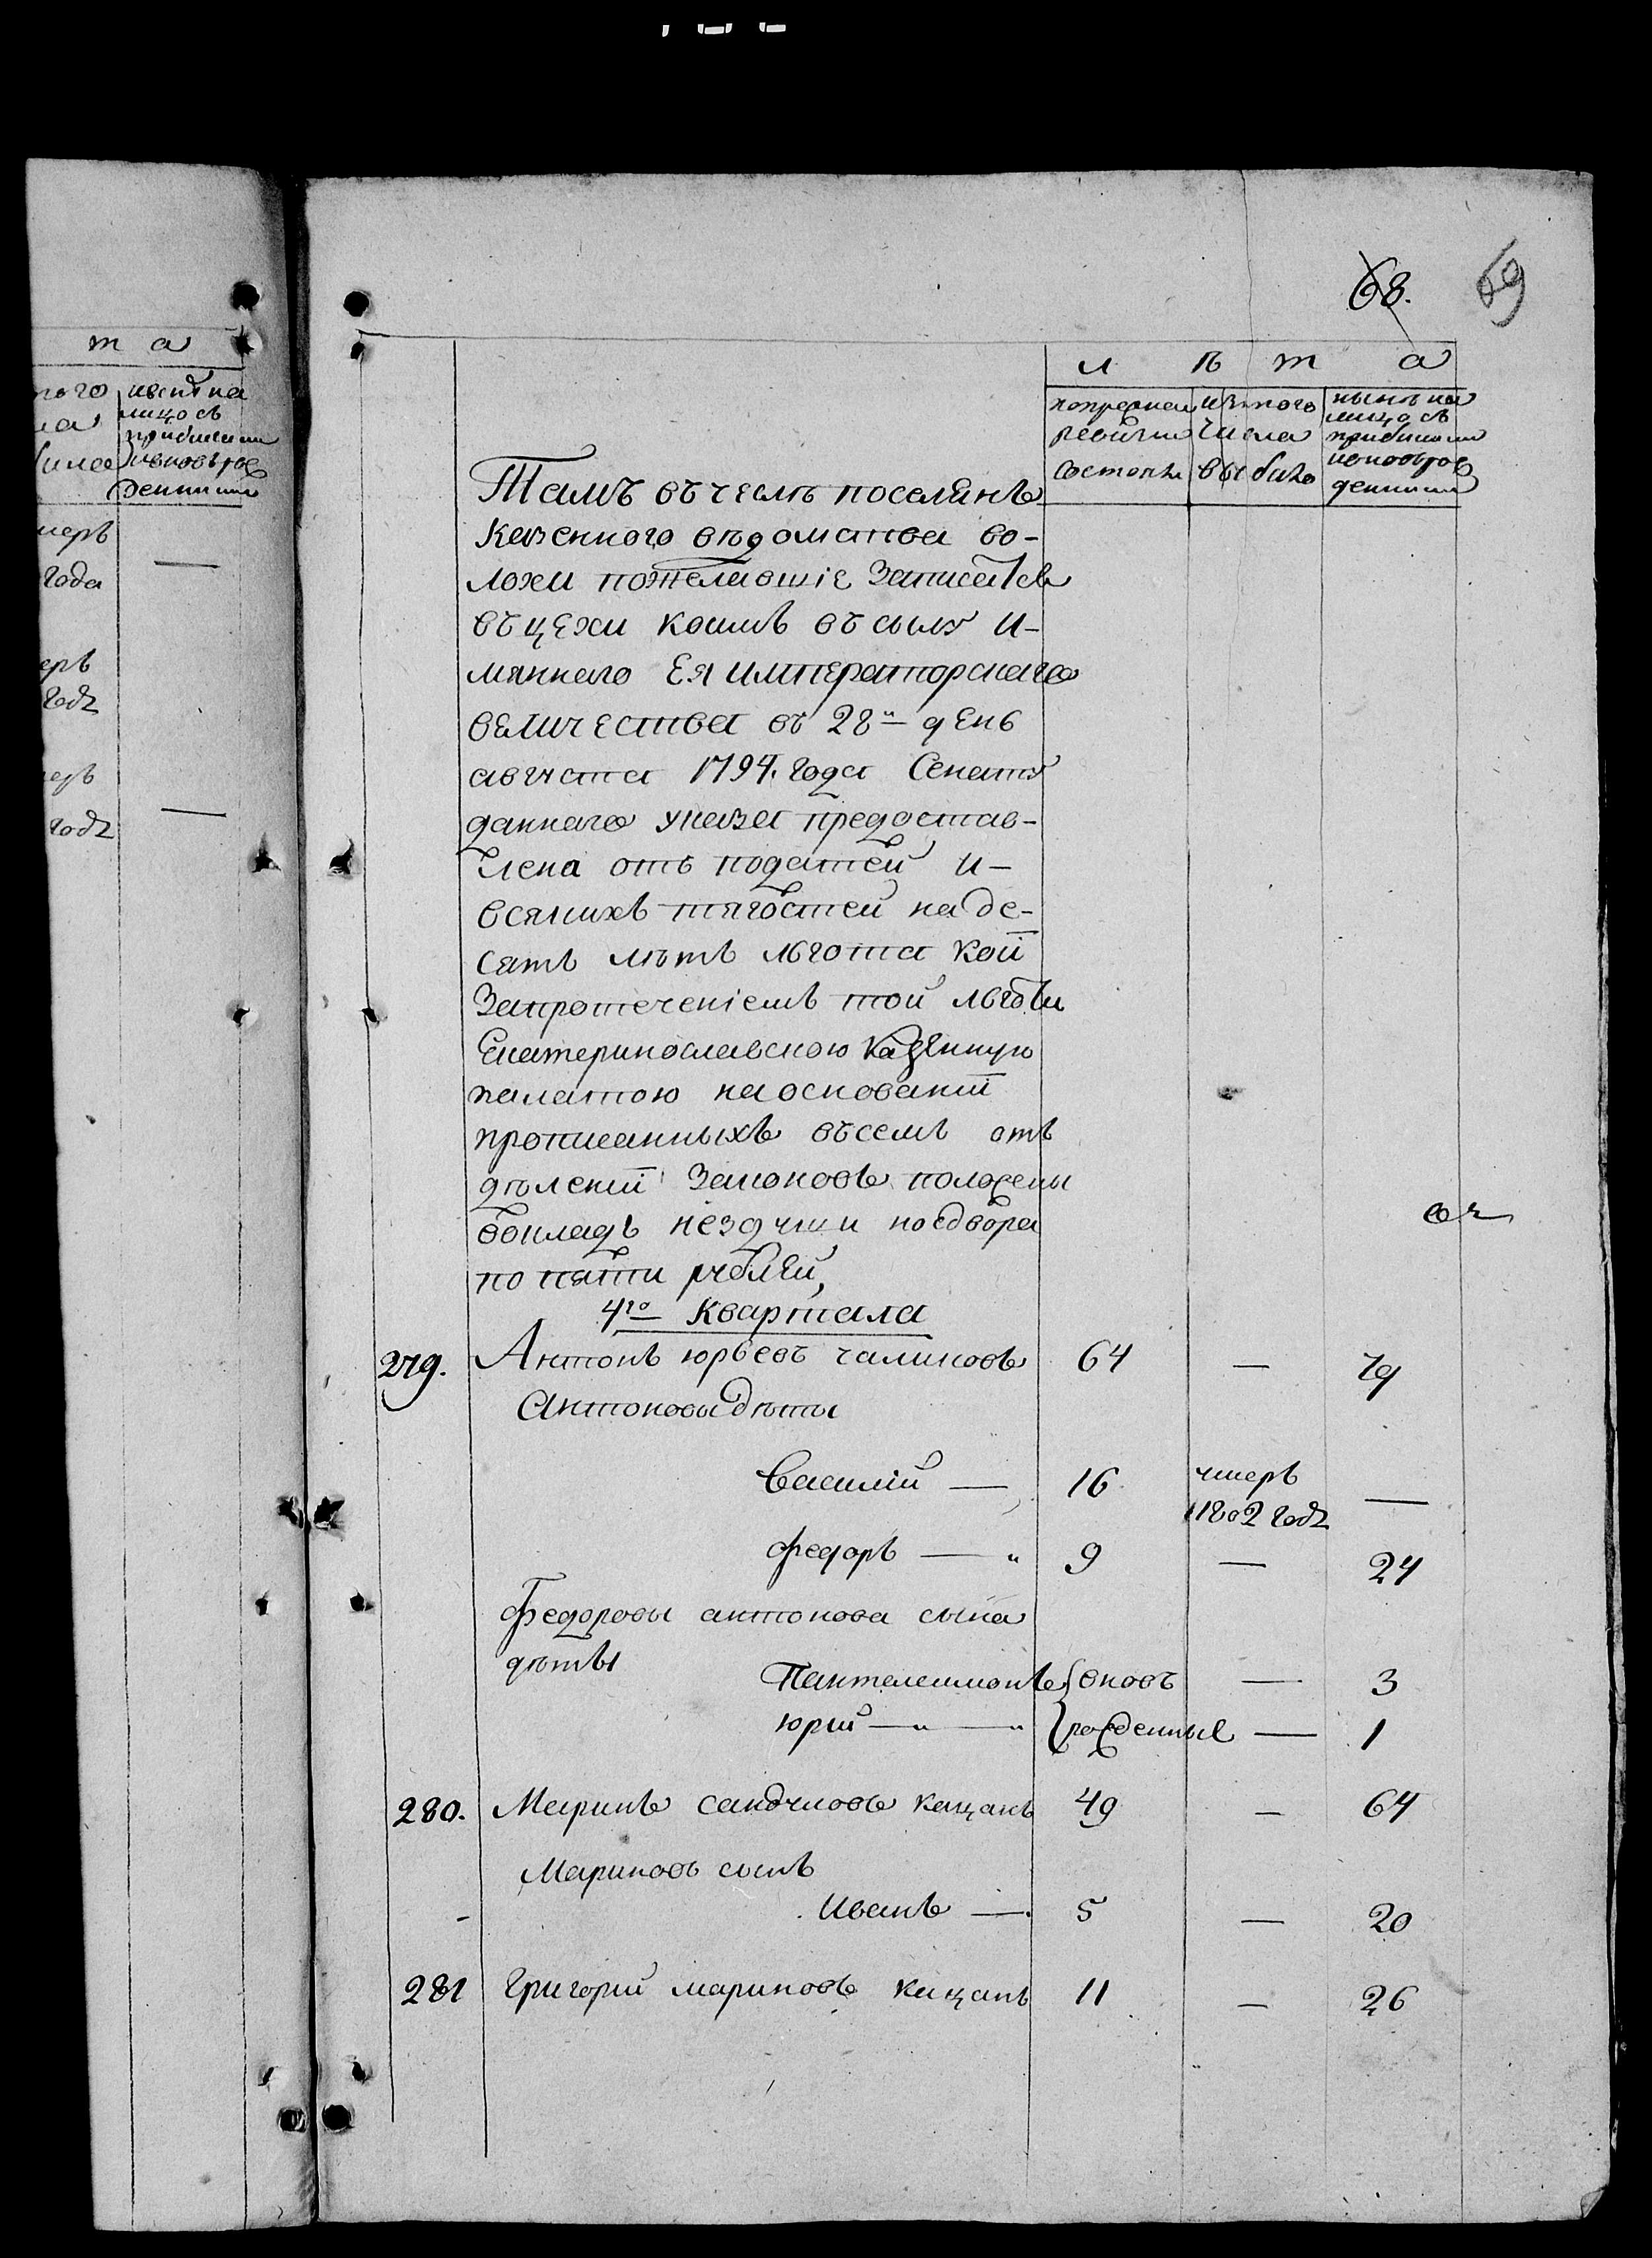 68. 69
л ѣ т а
попрежнеи ревизии состояло
изтого числа выбыло
нынѣ на лицо съ прибылыми иновърож денными
Тамъ въ числѣ поселянѣ
казенного вѣдомства во-
лохи пожелавшіе записатся
въ цехи коимъ въ силу и-
мяннаго Ея императорскаго
величества въ 28й день
августа 1794. года Сенату
даннаго указа предостав-
лена отъ податей и-
всякихъ тягостей на де-
сять лѣтъ льгота кои
Запротеченіемъ той льготы
Екатеринославскою казенную
палатою на основаніи
прописанныхъ въ семъ отъ
дѣленіи Законовъ положены
вокладъ нездуши но здвора
по пяти рублей,
4го квартала
279. Антонъ юрьевъ чаликовъ 64 — 79
Антоновы дѣты
Василій — 16 умеръ 1802 годъ —
федоръ — 9 — 24
Федоровы антонова сына
дѣты
Пантелеимонъ вновъ — 3
юрии — рожденные — 1
280. Маринъ сандуловъ кацанъ 49 — 64
Мариновъ сынъ
Иванъ — 5 — 20
281 Григорий мариновъ кацанъ 11 — 26
т а
лицо съ
года
годъ
годъ